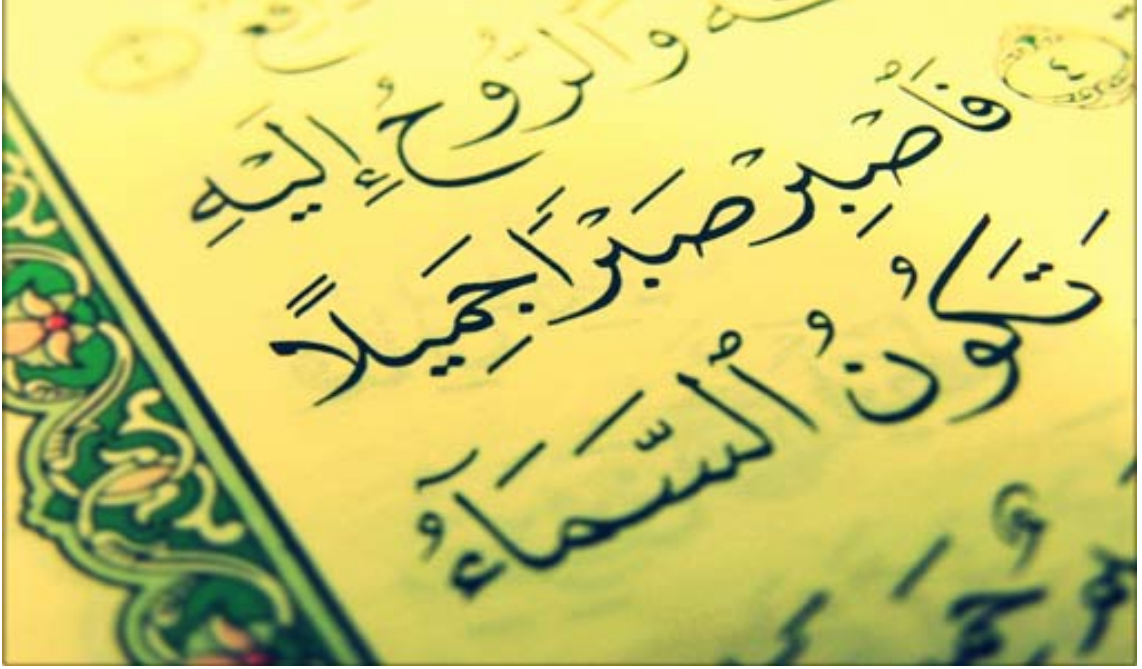 وَالرُّوحُ إِلَيْهِ
٤ فَاصْبِرْ صَبْرًا جَمِيلًا
تَكُونُ السَّمَآءُ